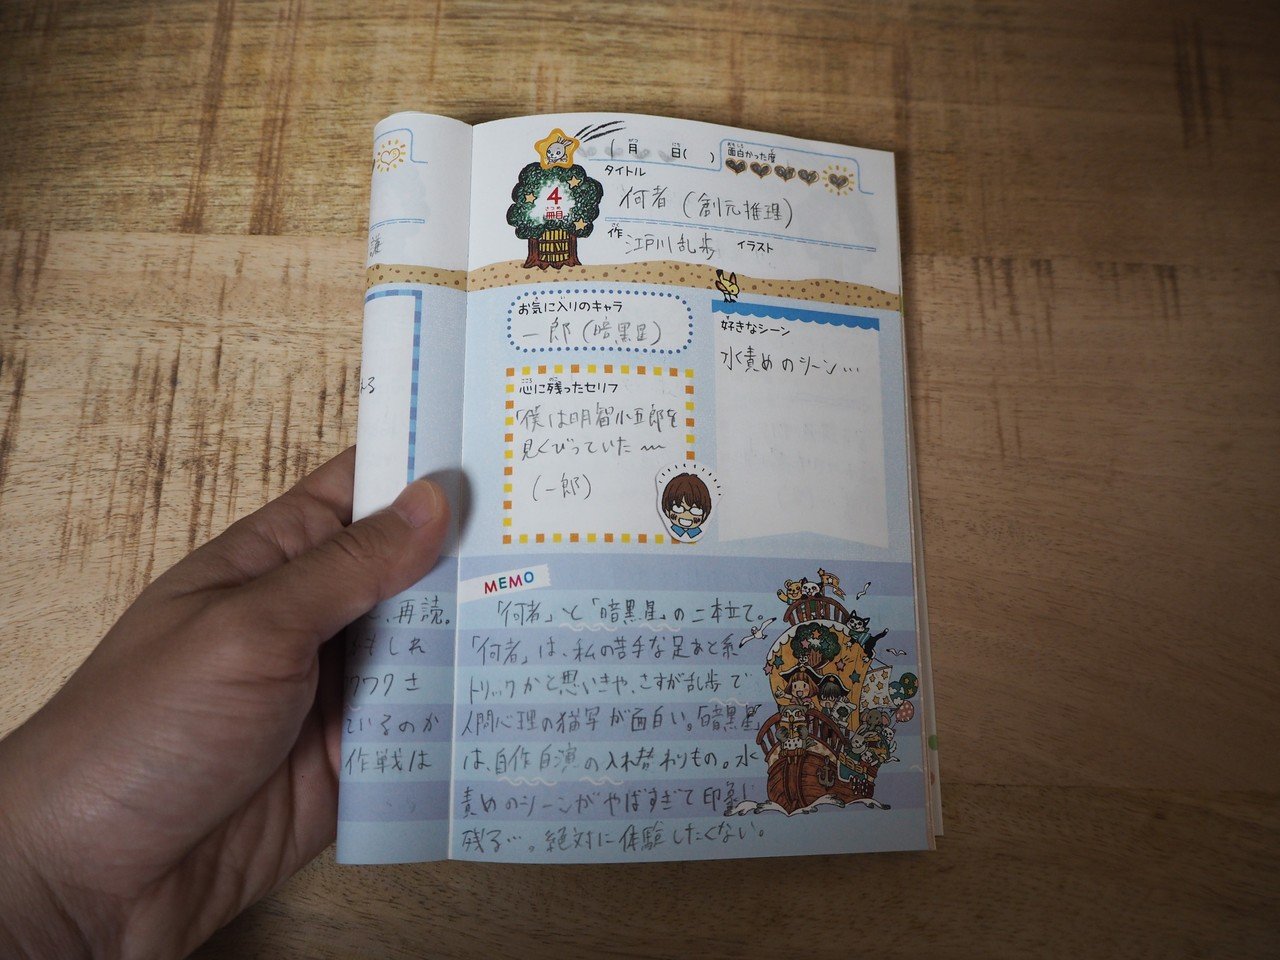 (月 日( )
面白かった度
おもしろ
がつ
にち
タイトル
何者(創元推理)
4
さつめ
冊目
さく
作 江戸川乱歩 イラスト
お気に入りのキャラ
一郎(暗黒星)
こころ のこ
心に残ったセリフ
「僕は明智小五郎を
見くびっていた〜
(一郎)
す
好きなシーン
水責めのシーン…
MEMO
「何者」と「暗黒星」の二本立て。
「何者」は、私の苦手な足あと系
トリックかと思いきや、さすが乱歩で
人間心理の描写が面白い。「暗黒星」
は、自作自演の入れ替わりもの。水
責めのシーンがやばすぎて印象に
残る…。絶対に体験したくない。
える
、再読。
もしれ
クワクさ
ているのか
作戦は